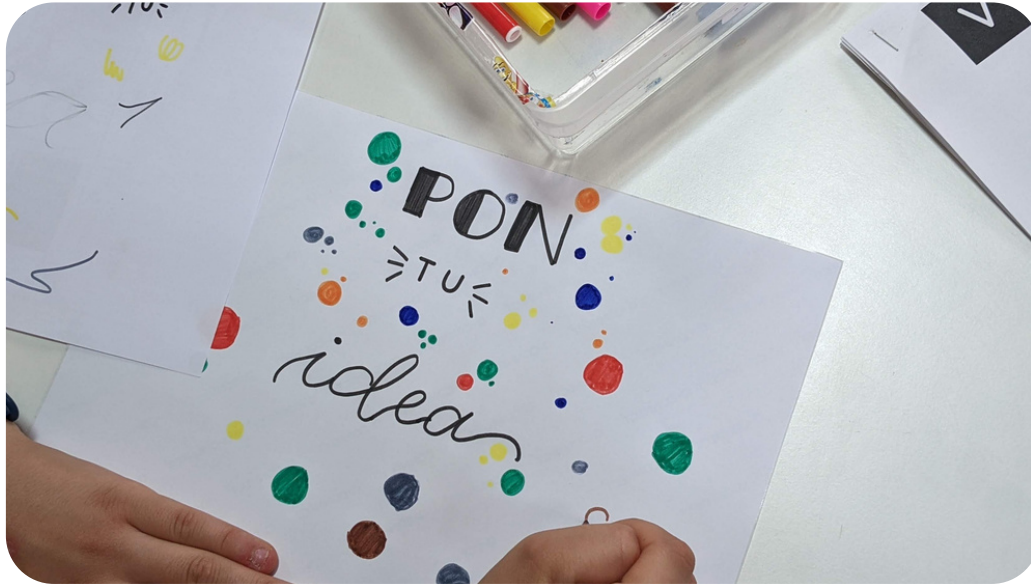 PON
TU
idea